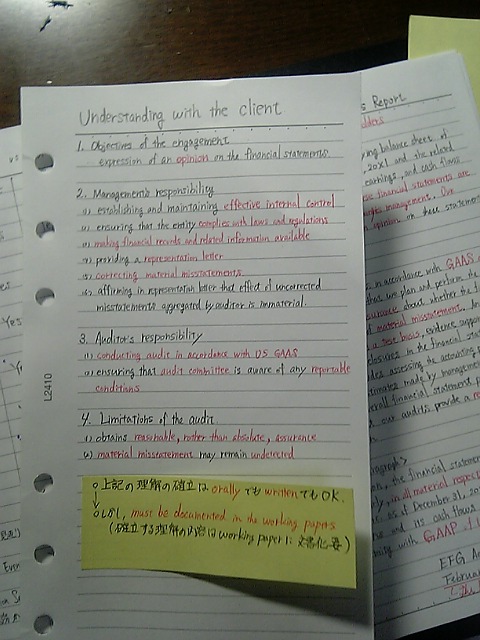 Understanding with the client
1. Objectives of the engagement
expression of an opinion on the financial statements.
2. Management's responsibility
1) establishing and maintaining effective internal control
2) ensuring that the entity complies with laws and regulations
3) making financial records and related information available
4) providing a representation letter
5) correcting material misstatements.
6) affirming in representation letter that effect of uncorrected
misstatements aggregated by auditor is immaterial.
3. Auditor's responsibility
1) conducting audit in accordance with US GAAS
2) ensuring that audit committee is aware of any reportable
conditions
4. Limitations of the audit.
1) obtains reasonable, rather than absolute, assurance
2) material misstatement may remain undetected
○上記の理解の確立は orally でも written でもOK.
○しかし, must be documented in the working papers
(確立する理解の内容はworking paperに文書化要)
L2410
Yes
s Report
ing balance sheet of
20X1 and the related
earnings, and cash flows
financial statements are
management. Our
opinion on these statements
in accordance with GAAS
that we plan and perform the
about whether the
material misstatement. An
a test basis, evidence
closures in the financial
assessing the accounting
made by management
overall financial statement
our audits provide a
the financial statements
in all material respects
as of December 31, 20
and its cash flows
with GAAP
EFG